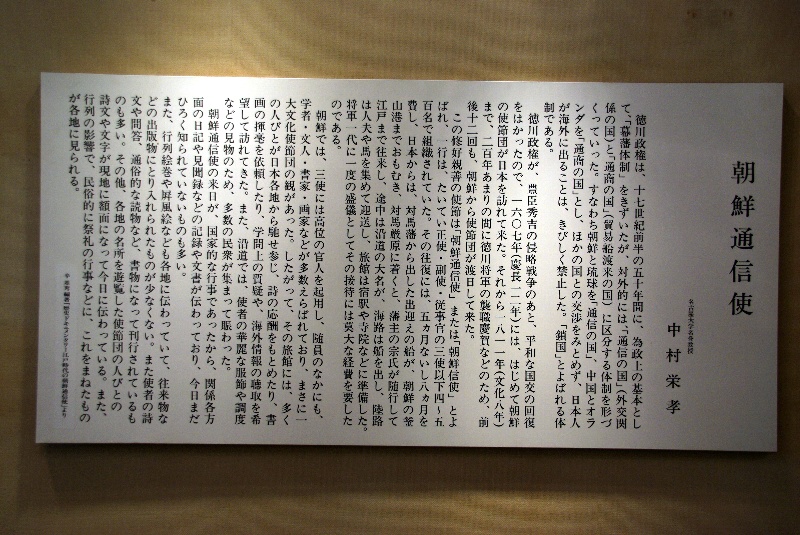 朝鮮通信使
名古屋大学名誉教授
中村栄孝
徳川政権は、十七世紀前半の五十年間に、為政上の基本とし
て、「幕藩体制」をきずいたが、対外的には、「通信の国」(外交関
係の国)と「通商の国」(貿易船渡来の国)に区分する体制を形づ
くっていった。すなわち朝鮮と琉球を「通信の国」、中国とオラ
ンダを「通商の国」とし、ほかの国との交渉をみとめず、日本人
が海外に出ることは、きびしく禁止した。「鎖国」とよばれる体
制である。
徳川政権が、豊臣秀吉の侵略戦争のあと、平和な国交の回復
をはかったので、一六〇七年(慶長一二年)には、はじめて朝鮮
の使節団が日本を訪れて来た。それから一八一一年(文化八年)
まで、二百年あまりの間に徳川将軍の襲職慶賀などのため、前
後十二回も、朝鮮から使節団が渡日して来た。
この修好親善の使節は「朝鮮通信使」または「朝鮮信使」とよ
ばれ、一行は、たいてい正使・副使・従事官の三使以下四~五
百名で組織されていた。その往復には、五ヵ月ないし八ヵ月を
費し、日本からは、対馬藩から出した出迎えの船が、朝鮮の釜
山港までおもむき、対馬厳原に着くと、藩主の宗氏が随行して
江戸まで往来し、途中は沿道の大名が、海路は船を出し、陸路
は人夫や馬を集めて迎送し、旅館は宿駅や寺院などに準備した。
将軍一代に一度の盛儀としてその接待には莫大な経費を要した
のである。
朝鮮では、三使には高位の官人を起用し、随員のなかにも、
学者・文人・書家・画家などが多数えらばれており、まさに一
大文化使節団の観があった。したがって、その旅館には、多く
の人びとが日本各地から馳せ参じ、詩の応酬をもとめたり、書
画の揮毫を依頼したり、学問上の質疑や、海外情報の聴取を希
望して訪れてきた。また、沿道では、使者の華麗な服飾や調度
などの見物のため、多数の民衆が集まって賑わった。
朝鮮通信使の来日が、国家的な行事であったから、関係各方
面の日記や見聞録などの記録や文書が伝わっており、今日まだ
ひろく知られていないものも多い。
また、行列絵巻や屏風絵なども各地に伝わっていて、往来物な
どの出版物にとり入れられたものが少なくない。また使者の詩
文や問答、通俗的な読物など、書物になって刊行されているも
のも多い。その他、各地の名所を遊覧した使節団の人びとの
詩文や文字が現地に額面になって今日に伝わっている。また、
行列の影響で、民俗的に祭礼の行事などに、これをまねたもの
が各地に見られる。
辛基秀編著「歴史ドキュメンタリー江戸時代の朝鮮通信使」より